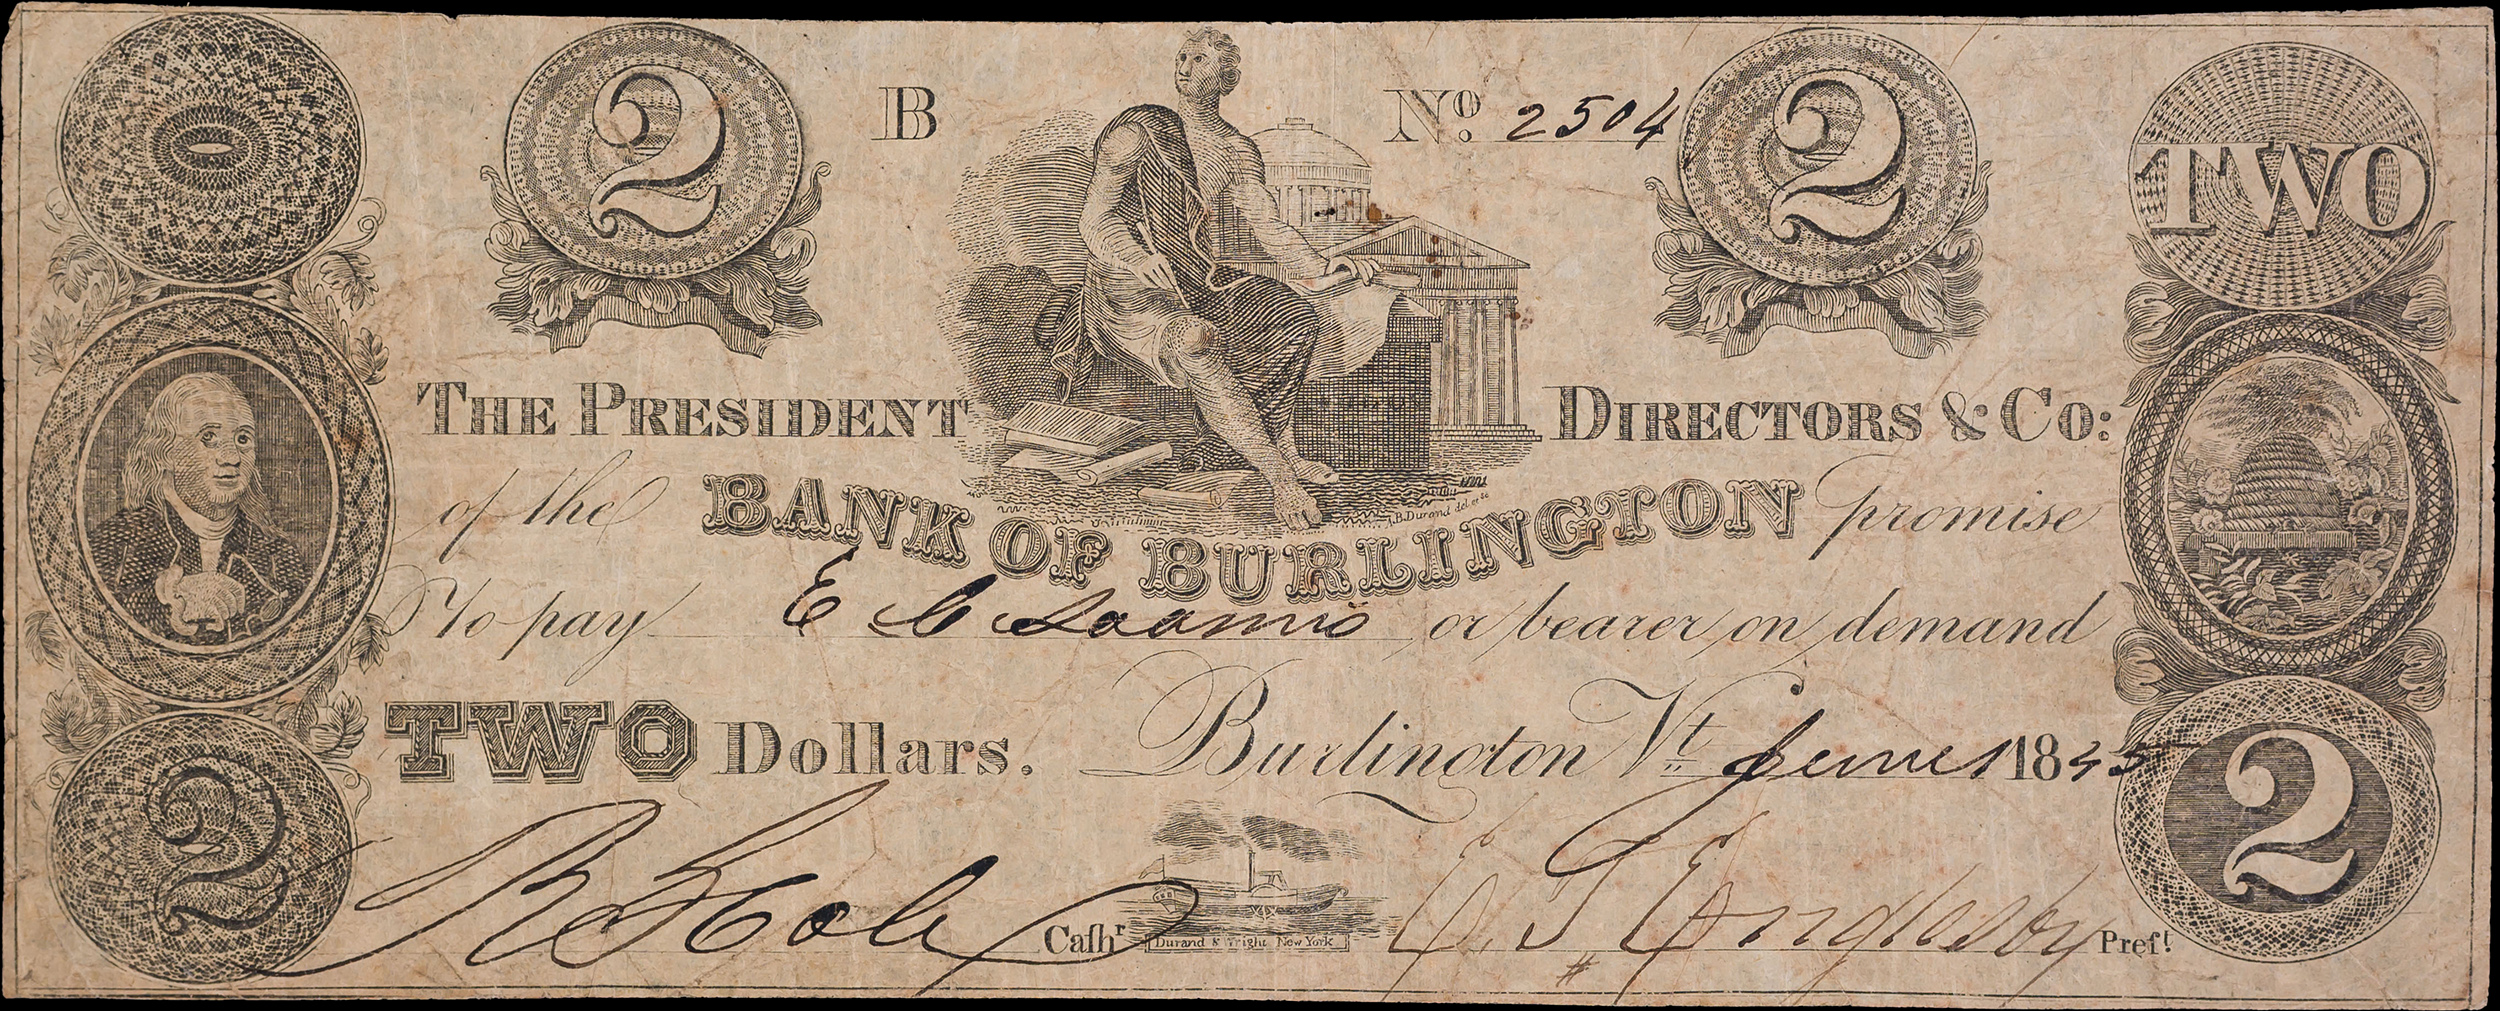 2 B Nº. 2504 2 TWO
THE PRESIDENT DIRECTORS & Co:
of the BANK OF BURLINGTON promise
A.B.Durand del et sc
To pay E C Loomis or bearer on demand
TWO Dollars. Burlington Vt. June 1 1835
2 R G Cole Caſhr. Durand & Wright New York E. T. Englesby Preſt. 2